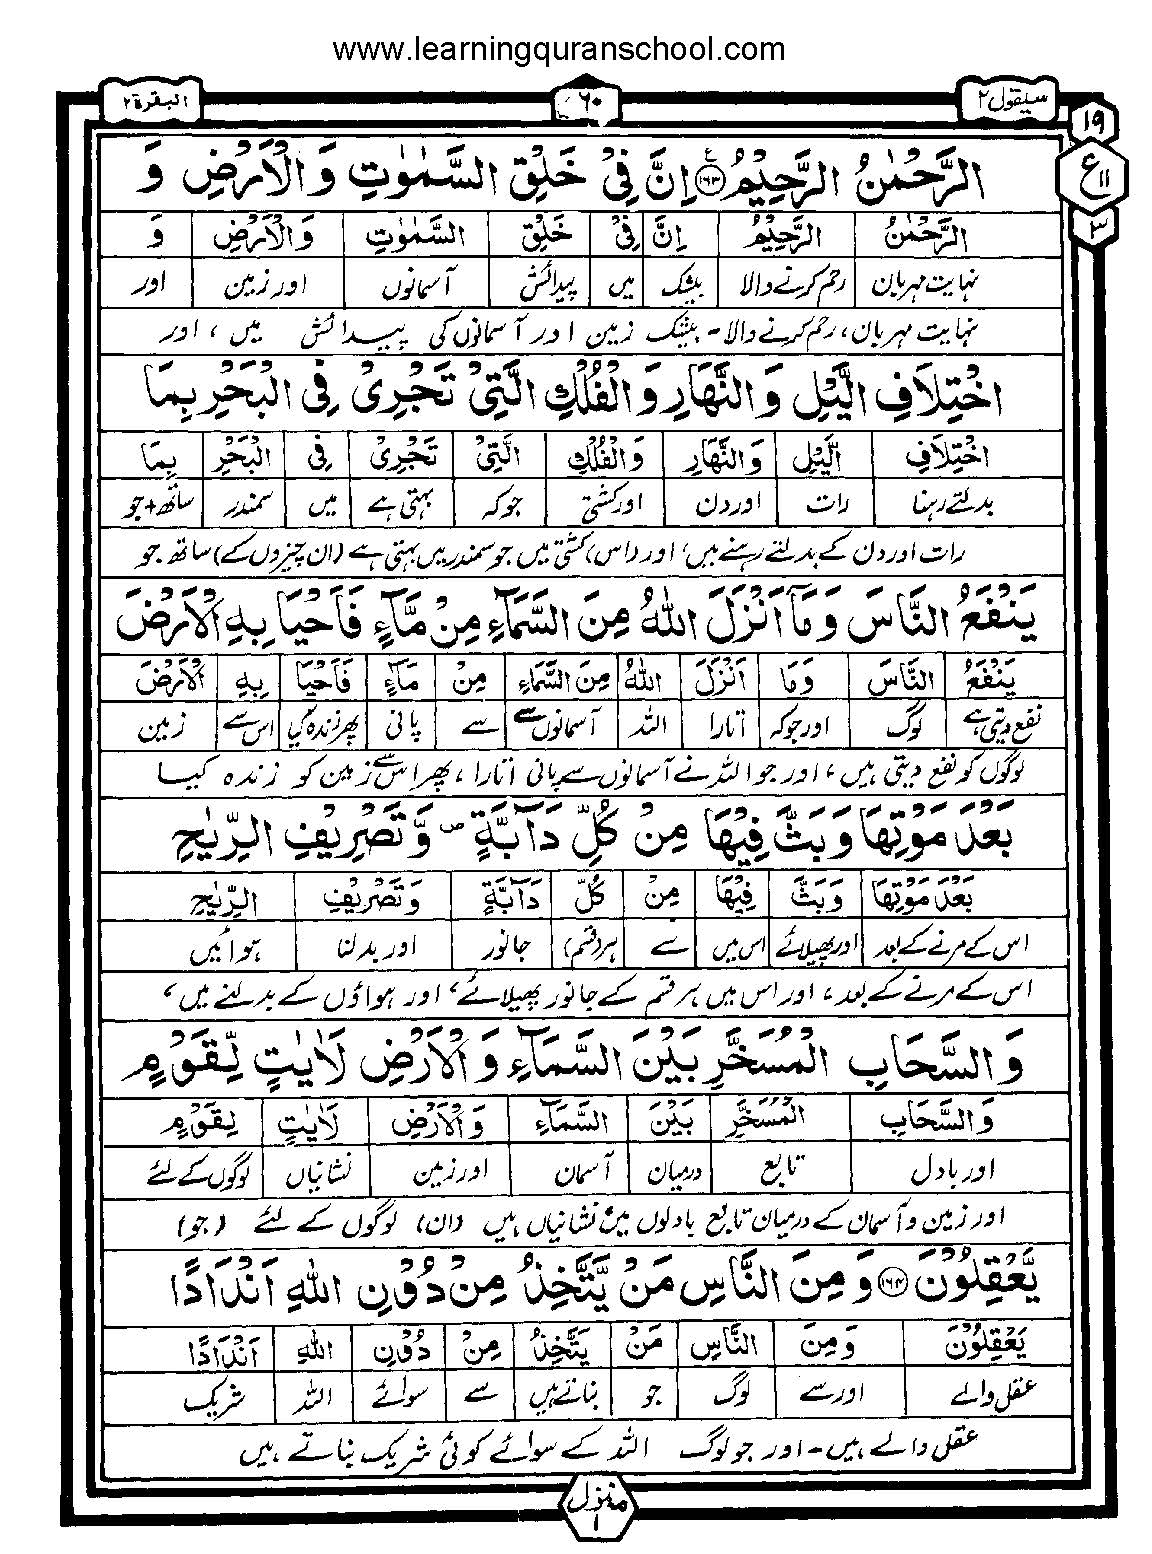 www.learningquranschool.com
سیقول ۲ ۶۰ البقرة ۲
۱۹
ع ۱۱
۳
الرَّحْمٰنُ الرَّحِيْمُ ۱۶۳ اِنَّ فِيْ خَلْقِ السَّمٰوٰتِ وَالْاَرْضِ وَ
الرَّحْمٰنُ الرَّحِيْمُ اِنَّ فِيْ خَلْقِ السَّمٰوٰتِ وَالْاَرْضِ وَ
نہایت مہربان رحم کرنے والا بیشک میں پیدائش آسمانوں اور زمین اور
نہایت مہربان، رحم کرنے والا - بیشک زمین اور آسمانوں کی پیدائش میں، اور
اخْتِلَافِ الَّيْلِ وَالنَّهَارِ وَالْفُلْكِ الَّتِيْ تَجْرِيْ فِي الْبَحْرِ بِمَا
اخْتِلَافِ الَّيْلِ وَالنَّهَارِ وَالْفُلْكِ الَّتِيْ تَجْرِيْ فِي الْبَحْرِ بِمَا
بدلتے رہنا رات اور دن اور کشتی جو کہ بہتی ہے میں سمندر ساتھ + جو
رات اور دن کے بدلتے رہنے میں، اور (اس) کشتی میں جو سمندر میں بہتی ہے (ان چیزوں کے) ساتھ جو
يَنْفَعُ النَّاسَ وَمَآ اَنْزَلَ اللّٰهُ مِنَ السَّمَآءِ مِنْ مَّآءٍ فَاَحْيَا بِهِ الْاَرْضَ
يَنْفَعُ النَّاسَ وَمَا اَنْزَلَ اللّٰهُ مِنَ السَّمَآءِ مِنْ مَآءٍ فَاَحْيَا بِهِ الْاَرْضَ
نفع دیتی ہے لوگ اور جو کہ اتارا اللہ آسمانوں سے سے پانی پھر زندہ کیا اس سے زمین
لوگوں کو نفع دیتی ہیں، اور جو اللہ نے آسمانوں سے پانی اتارا، پھر اس سے زمین کو زندہ کیا
بَعْدَ مَوْتِهَا وَبَثَّ فِيْهَا مِنْ كُلِّ دَآبَّةٍ ص وَّتَصْرِيْفِ الرِّيٰحِ
بَعْدَ مَوْتِهَا وَبَثَّ فِيْهَا مِنْ كُلِّ دَآبَّةٍ وَتَصْرِيْفِ الرِّيٰحِ
اس کے مرنے کے بعد اور پھیلائے اس میں سے ہر (قسم) جانور اور بدلنا ہوائیں
اس کے مرنے کے بعد، اور اس میں ہر قسم کے جانور پھیلائے، اور ہواؤں کے بدلنے میں،
وَالسَّحَابِ الْمُسَخَّرِ بَيْنَ السَّمَآءِ وَالْاَرْضِ لَاٰيٰتٍ لِّقَوْمٍ
وَالسَّحَابِ الْمُسَخَّرِ بَيْنَ السَّمَآءِ وَالْاَرْضِ لَاٰيٰتٍ لِقَوْمٍ
اور بادل تابع درمیان آسمان اور زمین نشانیاں لوگوں کے لئے
اور زمین و آسمان کے درمیان تابع بادلوں میں نشانیاں ہیں (ان) لوگوں کے لئے (جو)
يَّعْقِلُوْنَ ۱۶۴ وَمِنَ النَّاسِ مَنْ يَّتَّخِذُ مِنْ دُوْنِ اللّٰهِ اَنْدَادًا
يَعْقِلُوْنَ وَمِنَ النَّاسِ مَنْ يَتَّخِذُ مِنْ دُوْنِ اللّٰهِ اَنْدَادًا
عقل والے اور سے لوگ جو بناتے ہیں سے سوائے اللہ شریک
عقل والے ہیں - اور جو لوگ اللہ کے سوائے کوئی شریک بناتے ہیں
منزل ۱